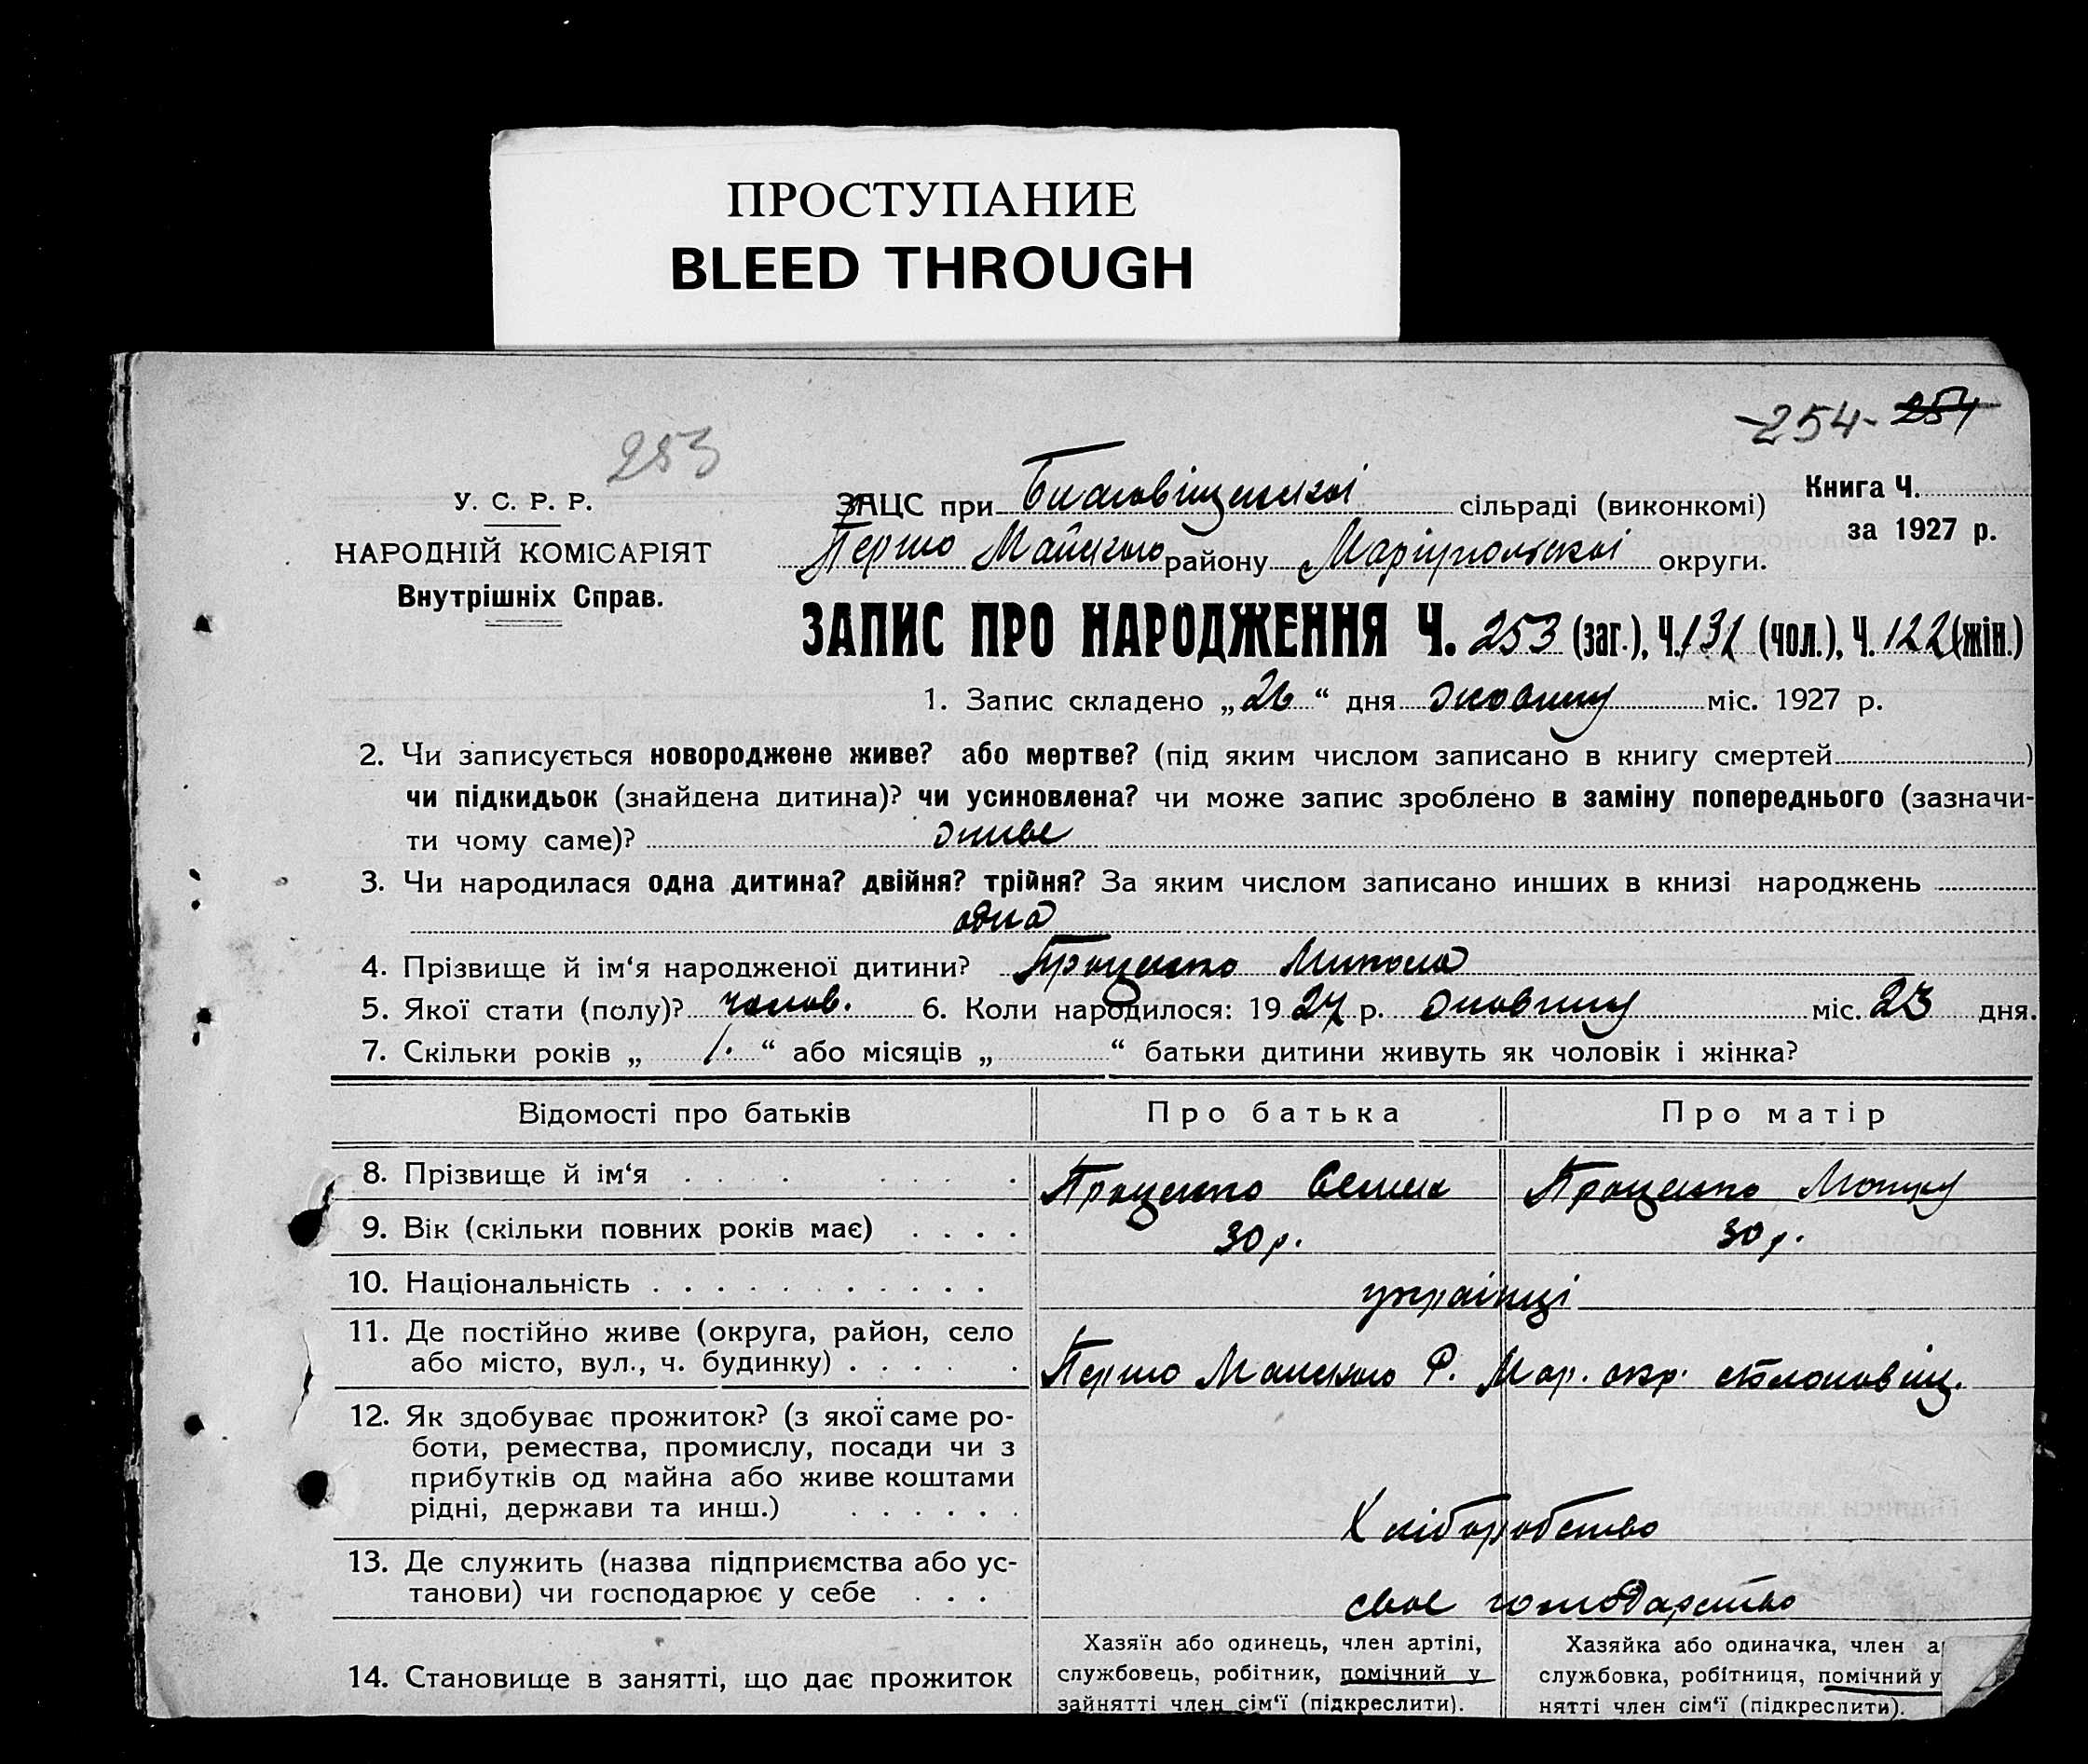 ПРОСТУПАНИЕ
BLEED THROUGH
-254- 254
253
У. С. Р. Р.
НАРОДНІЙ КОМІСАРІЯТ
Внутрішніх Справ.
ЗАЦС при сільраді (виконкомі)
Книга Ч.
за 1927 р.
Першо Майского району Маріупольскоі округи.
ЗАПИС ПРО НАРОДЖЕННЯ Ч. 253 (заг.), Ч. 131 (чол.), Ч. 122 (жін.)
1. Запис складено „26“ дня жовтню міс. 1927 р.
2. Чи записується новороджене живе? або мертве? (під яким числом записано в книгу смертей )
чи підкидьок (знайдена дитина)? чи усиновлена? чи може запис зроблено в заміну попереднього (зазначи-
ти чому саме)? живе
3. Чи народилася одна дитина? двійня? трійня? За яким числом записано инших в книзі народжень
одна
4. Прізвище й ім‘я народженої дитини? Проценко Микола
5. Якої стати (полу)? чолов. 6. Коли народилося: 1927 р. жовтню міс. 23 дня.
7. Скільки років „ 1. “ або місяців „ “ батьки дитини живуть як чоловік і жінка?
Відомості про батьків Про батька Про матір
8. Прізвище й ім‘я . . . . . . . . Проценко Семен Проценко
9. Вік (скільки повних років має) . . . . 30 р. 30 р.
10. Національність . . . . . . . . . . . українці
11. Де постійно живе (округа, район, село
або місто, вул., ч. будинку) . . . . . . Першо Майского Р. Мар. окр.
12. Як здобуває прожиток? (з якої саме ро-
боти, ремества, промислу, посади чи з
прибутків од майна або живе коштами
рідні, держави та инш.) . . . . . . Хліборобство
13. Де служить (назва підприємства або ус-
танови) чи господарює у себе . . . своє господарство
14. Становище в занятті, що дає прожиток
Хазяїн або одинець, член артілі,
службовець, робітник, помічний у
зайнятті член сім‘ї (підкреслити).
Хазяйка або одиначка, член а
службовка, робітниця, помічний у
нятті член сім‘ї (підкреслити).